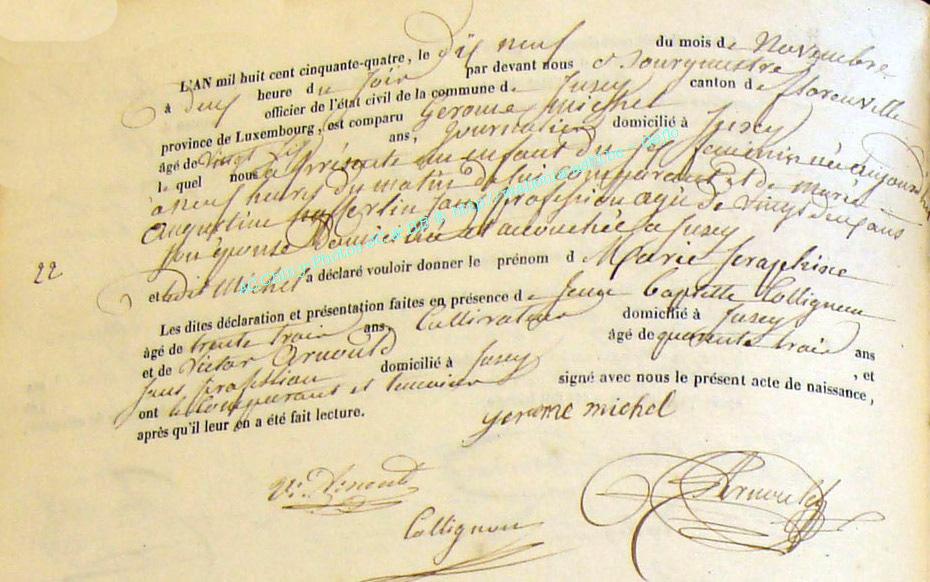 L'AN mil huit cent cinquante-quatre, le dix neuf du mois de Novembre
à deux heure du soir par devant nous Bourgmestre
officier de l'état civil de la commune de Jusey canton de florenville
province de Luxembourg, est comparu Gerome Michel
âgé de vingt six ans, Journalier domicilié à Jusey
lequel nous a présenté un enfant du sexe feminin né aujourd'hui
a neuf heures du matin de lui comparant et de marie
augustine sans profession agée de vingt deux ans
son épouse domiciliée et accouchée a Jusey
22
et ledit Michel a déclaré vouloir donner le prénom d Marie Seraphine
Les dites déclaration et présentation faites en présence de Jean Baptiste Collignon
âgé de trente trois ans, Cultivateur domicilié à Jusey
et de Victor Arnould âgé de quarante trois ans
sans profession domicilié à Jusey , et
ont le comparant et temoins signé avec nous le présent acte de naissance,
après qu'il leur en a été fait lecture.
gerome michel
Vi. Arnould
Arnould
Collignon